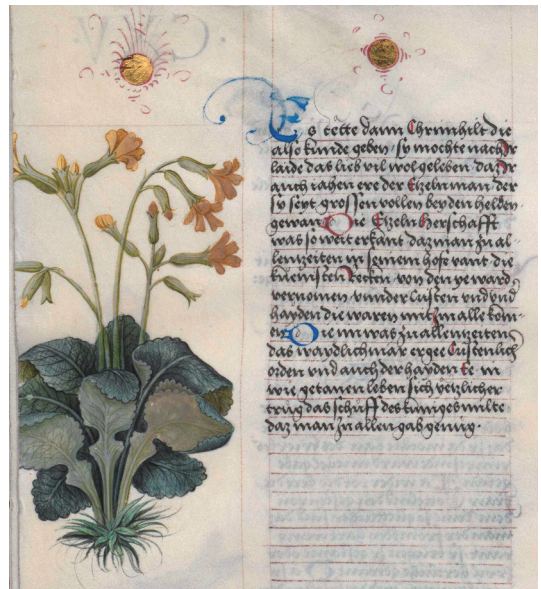 Es tette dann Chrimhilt die
also kunde geben · so mochte nach ir
laide das lieb vil wol geleben · daz ir
auch iahen ere der Etzeln man · der
sy seyt grossen vollen bey den helden ·
gewan Die Etzeln Herschafft
was so weit erkant daz man zu al-
lenzeiten in seinem hofe vant die
küenisten Recken · von den ye ward
vernomen · vnnder Cristen vnd vnd
hayden die waren mit im alle kom-
en Die im was zu allen zeiten
das waydlich mär ergee Cristenlich
orden vnd auch der hayden Ee · in
wie getanen leben sich yetzlicher
trug das schuff des kuniges milte
daz man zu allen gab genug ·